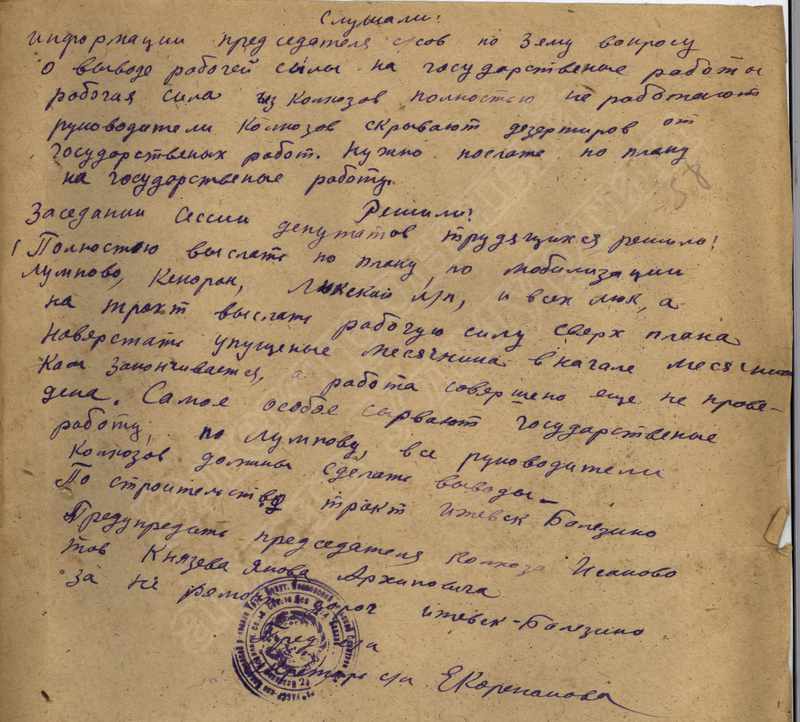 Слушали:
информации председателя с/сов по 3ему вопросу
о выводе рабочей силы на государственые работы
рабочая сила из колхозов полностью не работают
руководители колхозов скрывают дезертиров от
государственых работ. Нужно послать по плану
на государственые работы.
58
Решили:
Заседании сессии депутатов трудящихся решило:
1 Полностью выслать по плану, по мобилизации
Лумпово, Кекоран, и всех а
на тракт выслать рабочую силу сверх плана
Наверстать упущеные месячника в начале
заканчивается, а работа совершено еще не прове-
дена. Самое особое срывают государственые
работу, по Лумпову, все руководители
колхозов должны сделать выводы-
По строительству тракт Ижевск Балезино
Предупредать председателя колхоза Исаково
тов Князева Якова Архиповича
за не дорог Ижевск-Балезино
Пред с/са
Секретарь с/са ЕКорепанова